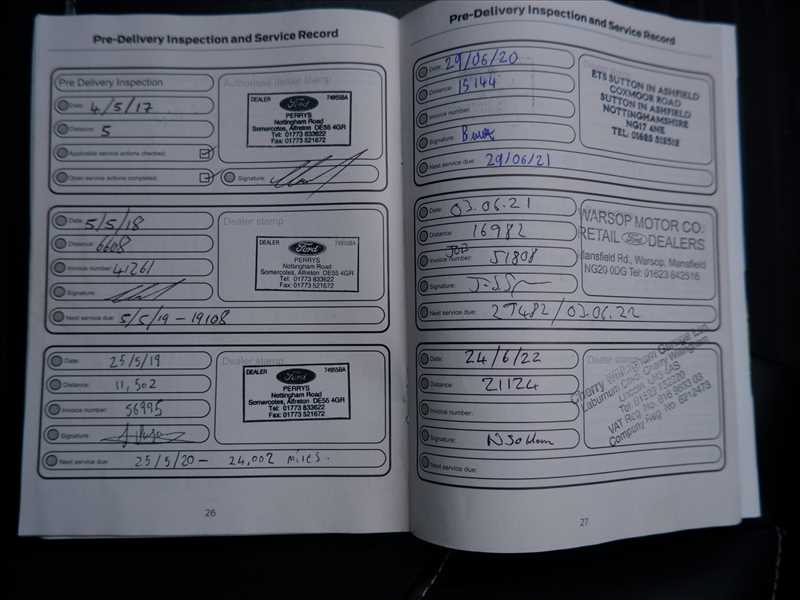 Pre-Delivery Inspection and Service Record
Pre Delivery Inspection
Authorised dealer stamp
Date: 4/5/17
Distance: 5
Applicable service actions checked:
Open service actions completed:
Signature:
DEALER Ford 74955BA
PERRYS
Nottingham Road
Somercotes, Alfreton DE55 4GR
Tel: 01773 833622
Fax: 01773 521672
Date: 5/5/18
Distance: 6608
Invoice number: 41261
Signature:
Next service due: 5/5/19 - 19108
Dealer stamp
DEALER Ford
PERRYS
Nottingham Road
Somercotes, Alfreton DE55 4GR
Tel: 01773 833622
Fax: 01773 521672
Date: 25/5/19
Distance: 11,502
Invoice number: 56995
Signature:
Next service due: 25/5/20 - 24,002 miles.
Dealer stamp
DEALER Ford
PERRYS
Nottingham Road
Somercotes, Alfreton DE55 4GR
Tel: 01773 833622
Fax: 01773 521672
26
Pre-Delivery Inspection and Service Record
Date: 29/06/20
Distance: 15144
Invoice number:
Signature:
Next service due: 29/06/21
ETS SUTTON IN ASHFIELD
COXMOOR ROAD
SUTTON IN ASHFIELD
NOTTINGHAMSHIRE
NG17 4NE
Date: 03.06.21
Distance: 16982
JOB
Invoice number: 51808
Signature:
Next service due: 29482/03.06.22
WARSOP MOTOR CO.
RETAIL Ford DEALERS
Mansfield Rd., Warsop, Mansfield
NG20 0DG Tel: 01623 842516
Date: 24/6/22
Distance: 21124
Invoice number:
Signature:
Next service due:
Dealer stamp
Cherry Willingham Garage Ltd
Laburnum Drive, Cherry Willingham
27